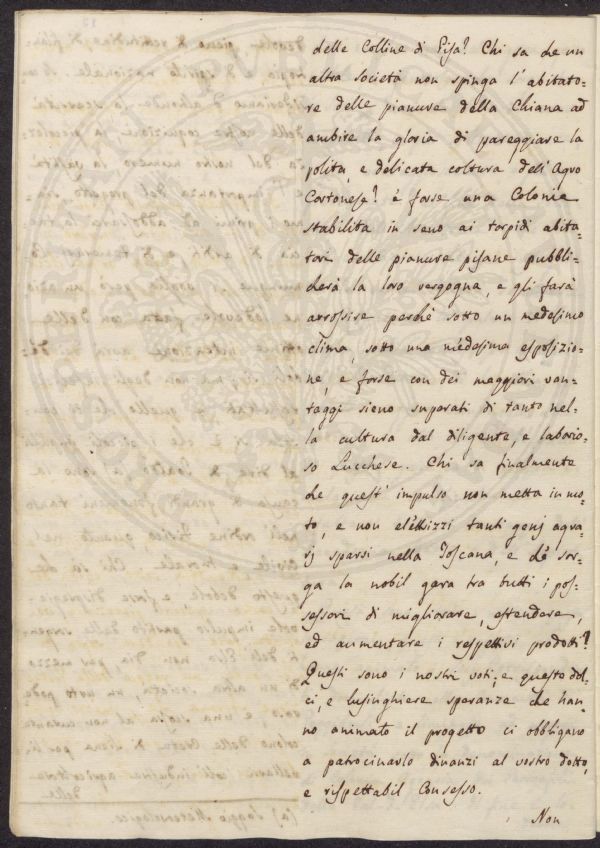 delle Colline di Pisa? Chi sa che un
altra società non spinga l'abitato-
re delle pianure della Chiana ad
ambire la gloria di pareggiare la
polita, e delicata coltura dell'Agro
Cortonese? è forse una Colonia
stabilita in seno ai torpidi abita-
tori delle pianure pisane pubbli-
cherà la loro vergogna, e gli farà
arrossire perchè sotto un medesimo
clima, sotto una medesima esposizio-
ne, e forse con dei maggiori van-
taggi sieno superati di tanto nel-
la cultura dal diligente, e laborio-
so Lucchese. Chi sa finalmente
che quest'impulso non metta in mo-
to, e non elettrizzi tanti genj agra-
rj sparsi nella Toscana, e che sor-
ga la nobil gara tra tutti i pos-
sessori di migliorare, estendere,
ed aumentare i respettivi prodotti?
Questi sono i nostri voti; e queste dol-
ci, e lusinghiere speranze che han-
no animato il progetto ci obbligano
a patrocinarlo dinanzi al vostro dotto,
e rispettabil Consesso.
Non